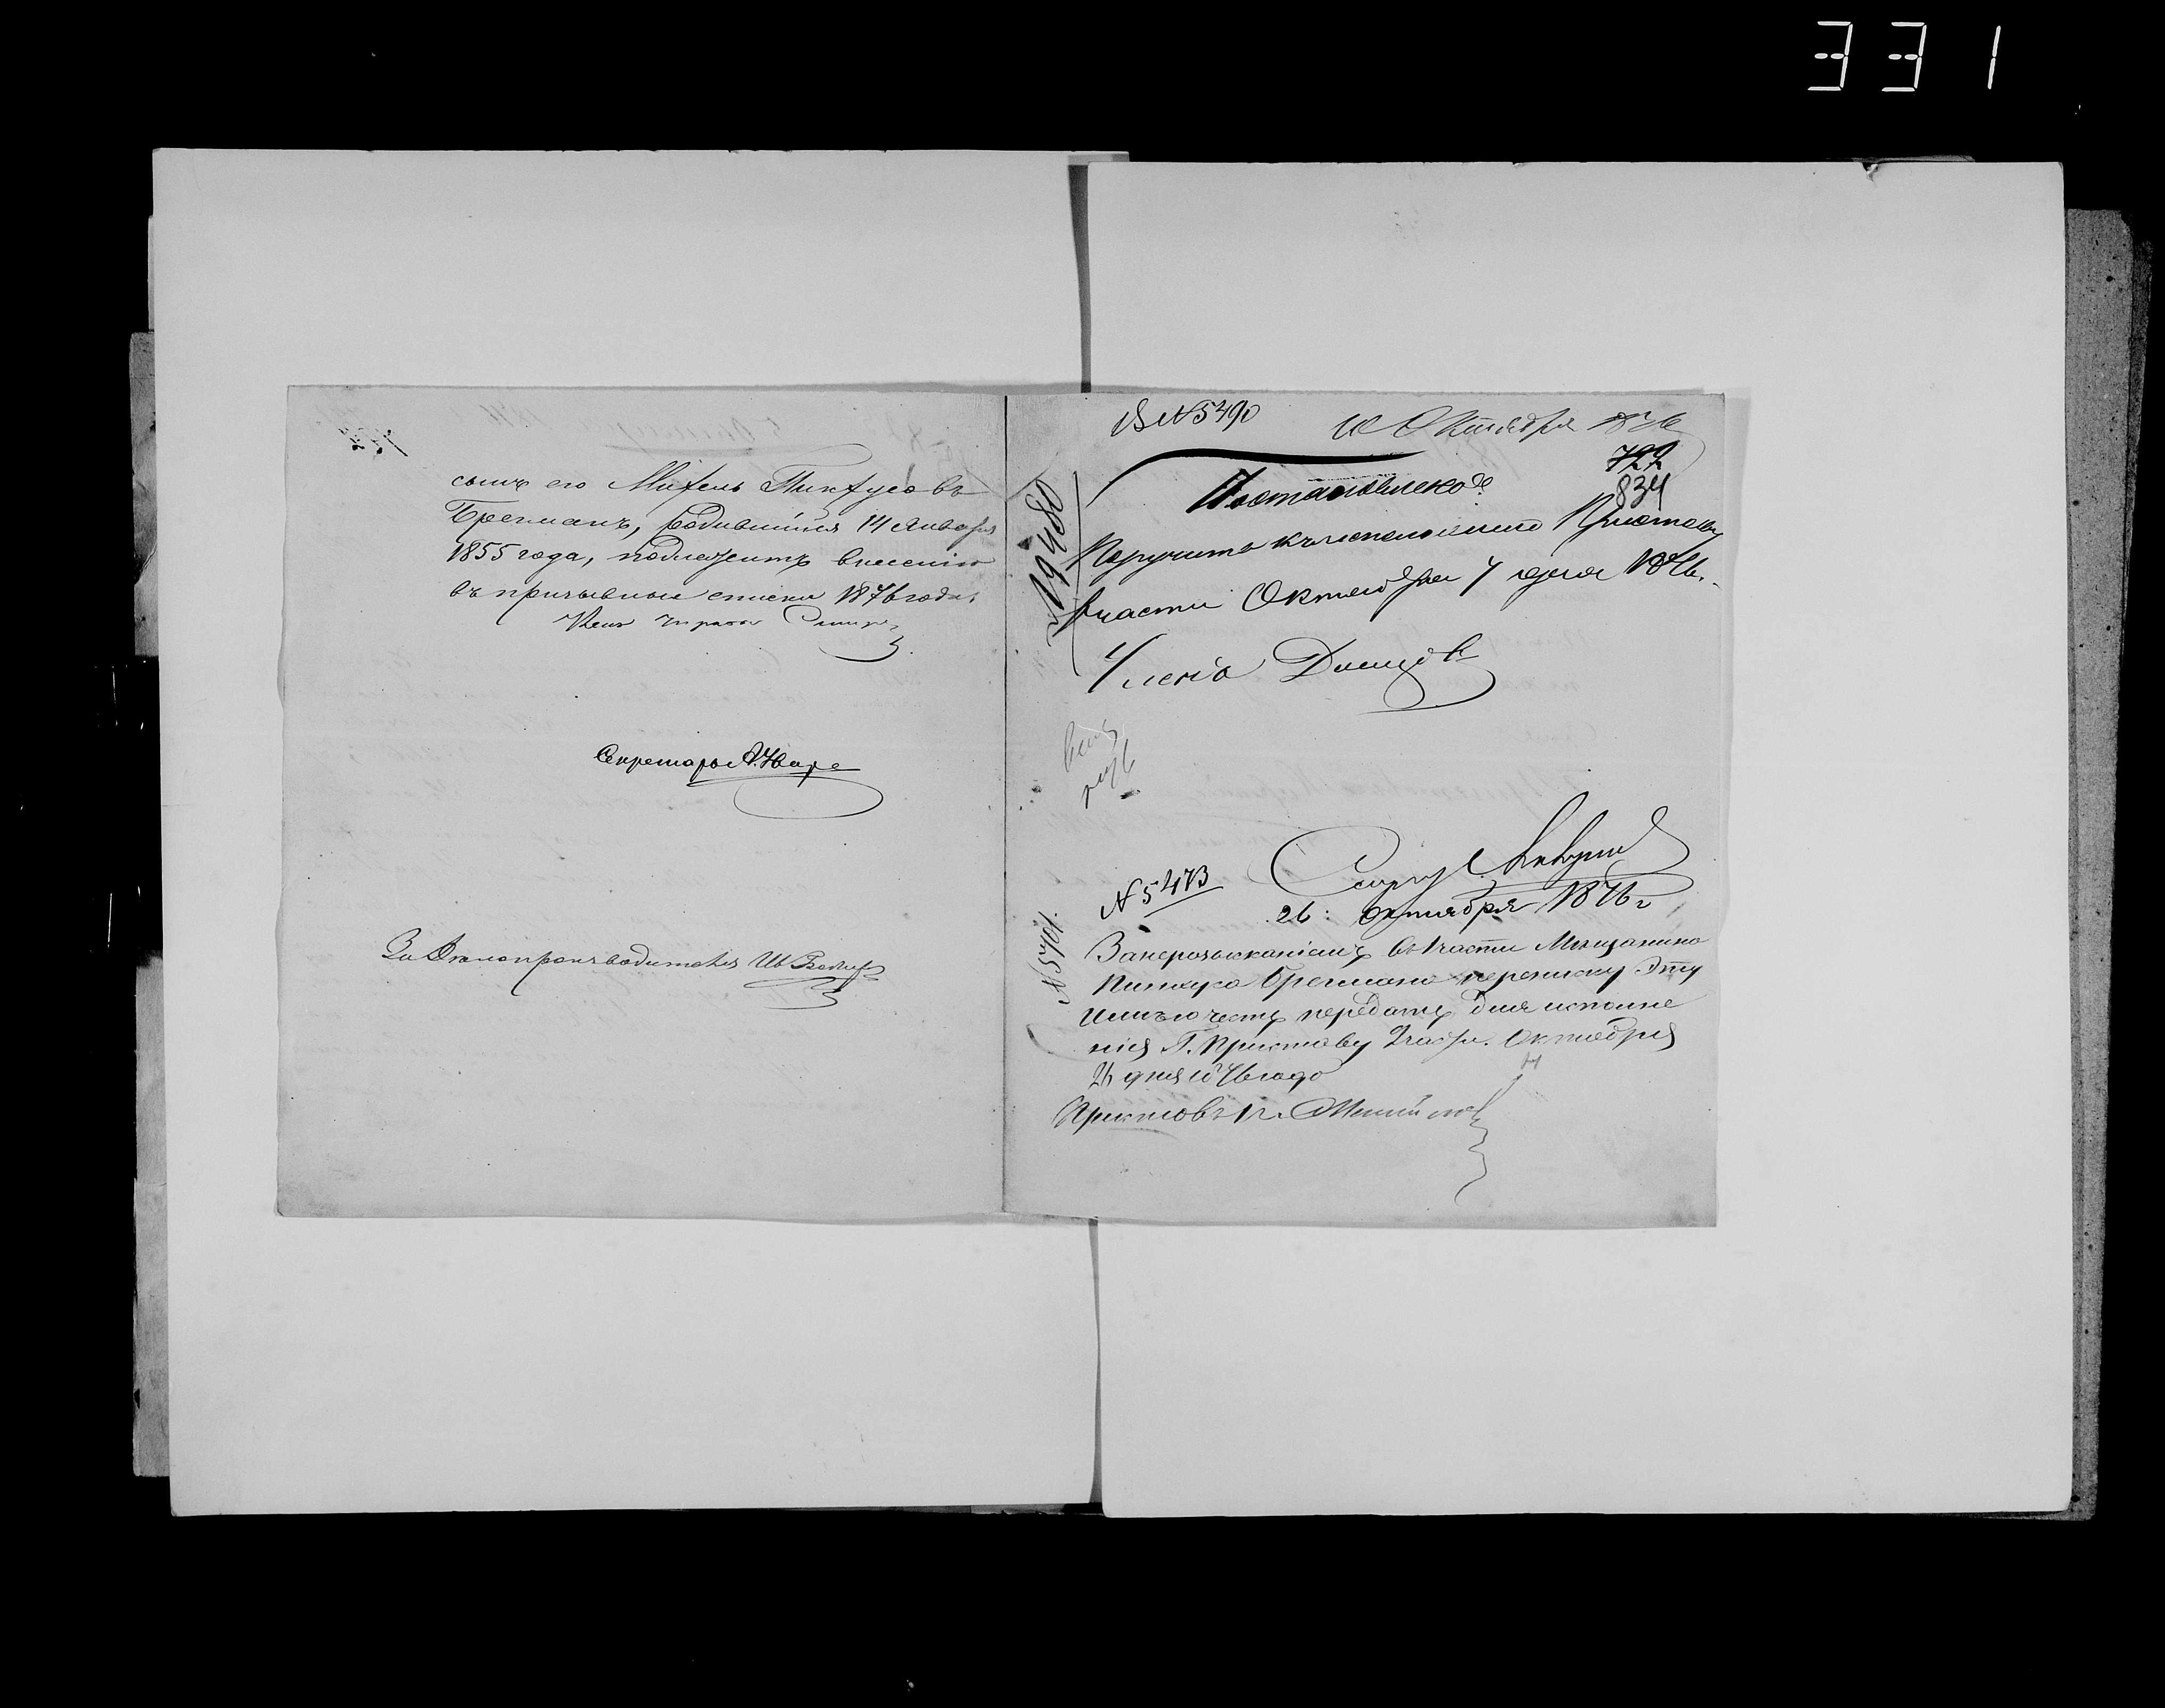 331
сынъ его Михель Пинхусовъ
Брегманъ, родившійся 14 Января
1855 года, подлежитъ внесенію
въ призывные списки 1876 года.
Членъ Управы
Секретарь
За Дѣлопроизводителя
В №5490
10 Октября 1876
722
834
Постановлено:
Поручить къ исполненію Приставу
1 части Октября 7 дня 1876.
Члена
№19480
№5473
26 Октября 1876 г
№5701.
За нерозысканіемъ въ 1 части Мещанина
Пинхуса Брегмана переписку эту
имѣю честь передать для исполне
нія Г. Приставу 2 части. Октября
26 дня 1876 года
Приставъ 1 ч.